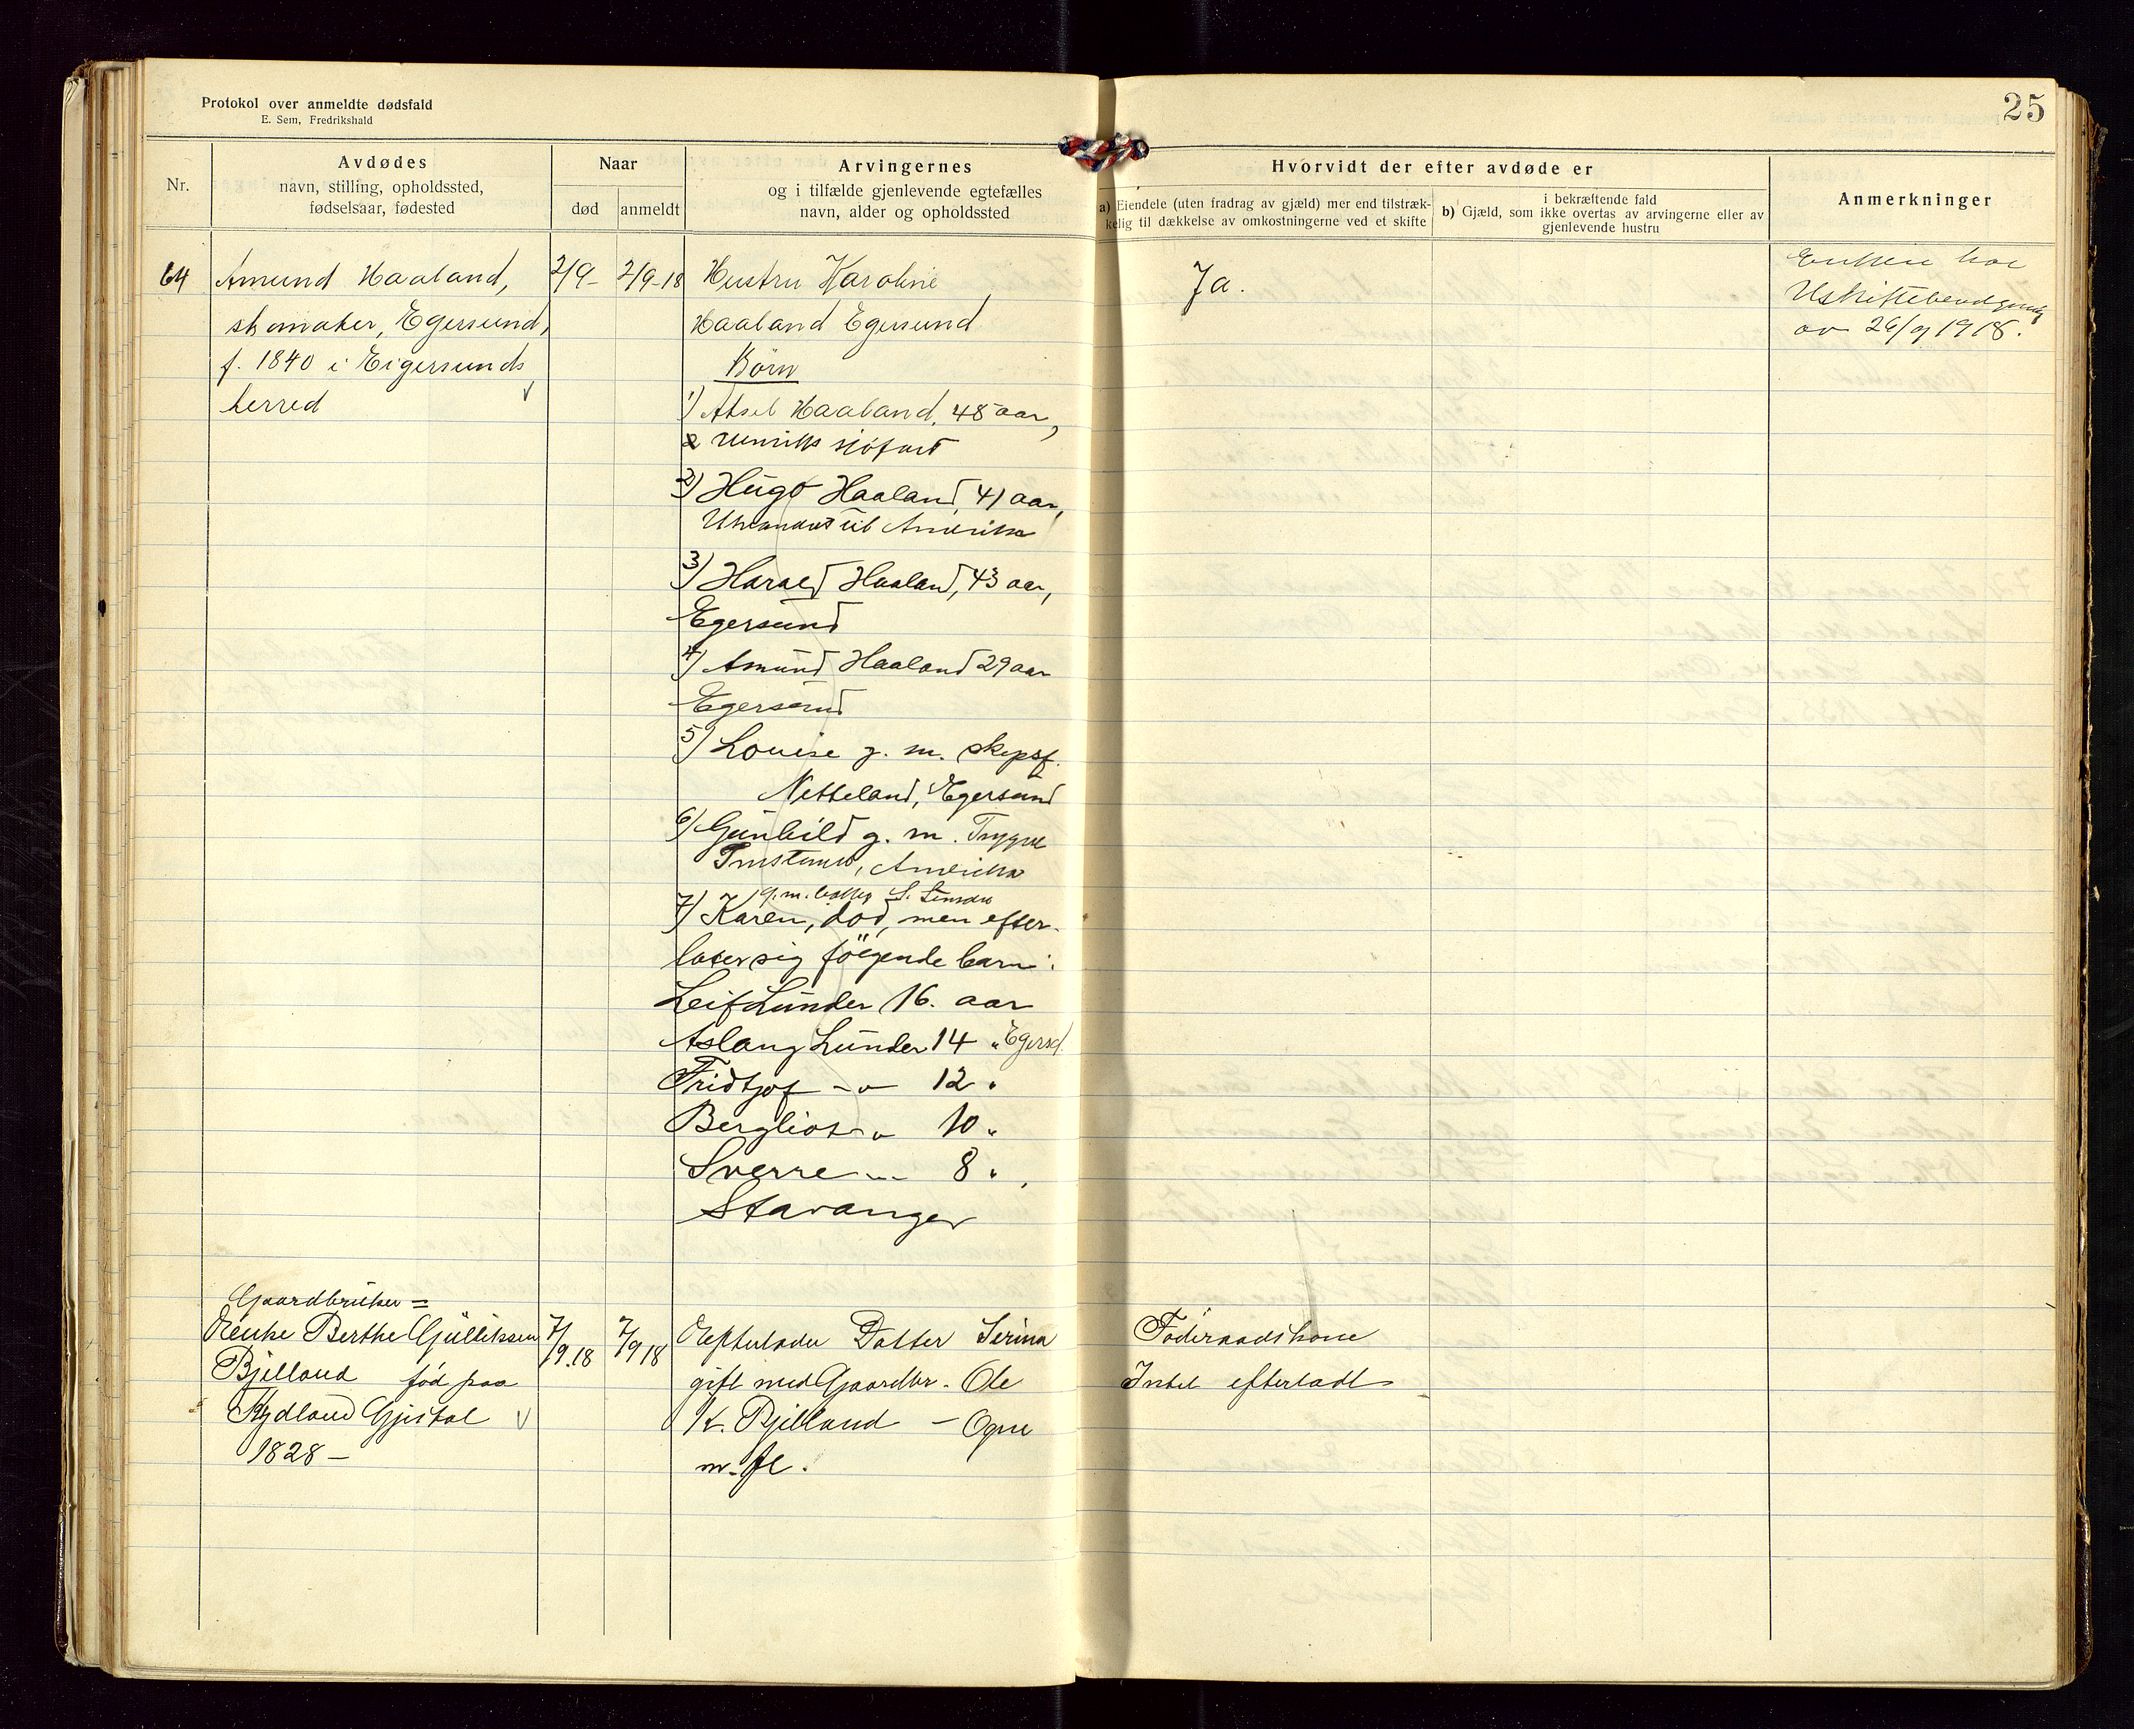 Protokol over anmeldte dødsfald
E. Sem, Fredrikshald
25
Nr.
Avdødes
navn, stilling, opholdssted,
fødselsaar, fødested
Naar
død
anmeldt
Arvingernes
og i tilfælde gjenlevende egtefælles
navn, alder og opholdssted
Hvorvidt der efter avdøde er
a) Eiendele (uten fradrag av gjæld) mer end tilstræk-
kelig til dækkelse av omkostningerne ved et skifte
b) Gjæld, som
i bekræftende fald
ikke overtas av arvingerne eller av
gjenlevende hustru
Anmerkninger
64
Amund Haaland,
skomaker, Egersund,
f. 1840 i Eigersunds
herred
2/9-
2/9-18
Hustru Karoline
Haaland Egersund
Börn
1) Aksel Haaland, 48 aar,
utenriks sjöfart
2) Hugo Haaland, 41 aar,
Utvandret til Amerika
3) Harald Haaland, 43 aar,
Egersund
4) Amund Haaland 29 aar
Egersund
5) Louise g. m. skipsf.
Netteland, Egersund
6) Gunhild g. m. Trygve
Amerika
g. m.
7) Karen, död, men efter-
later sig fölgende barn:
Leif Lunder 16. aar
Aslaug Lunder 14 " Egersd.
Fridtjof -"- 12 "
Bergliot -"- 10 "
Sverre -"- 8 ",
Stavanger
Ja.
Enken har
Uskiftebevilgning
av 26/9 1918.
Gaardbruker=
Enke Berthe Gülliksen
Bjelland fød paa
Rydland Gjestal
1828 -
7/9.18
7/9 18
Efterlader Datter Serina
gift med Gaardbr. Ole
K. Bjelland - Ogne
m. fl.
Föderaadskone
Intet efterladt